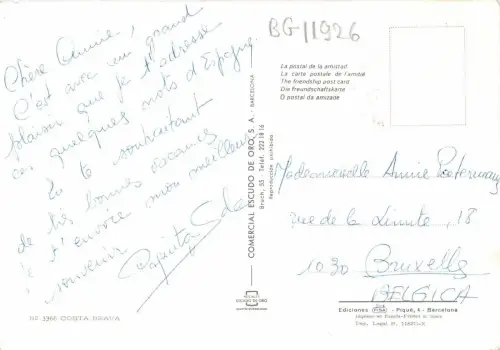 BG11926
Chère Annie,
C'est avec un grand
plaisir que je t'adresse
ces quelques mots d'Espagne.
En te souhaitant
de très bonnes vacances
je t'envoie mon meilleur
souvenir
La postal de la amistad
La carte postale de l'amitié
The friendship post card
Die Freundschaftskarte
O postal da amizade
COMERCIAL ESCUDO DE ORO, S. A. - BARCELONA
Bruch, 55 - Teléf. 222 18 16
Reproducción prohibida
ESCUDO DE ORO
Mademoiselle Annie
rue de la Limite, 18
1030 Bruxelles
BELGICA
Ediciones FISA - Piqué, 4 - Barcelona
3366 COSTA BRAVA